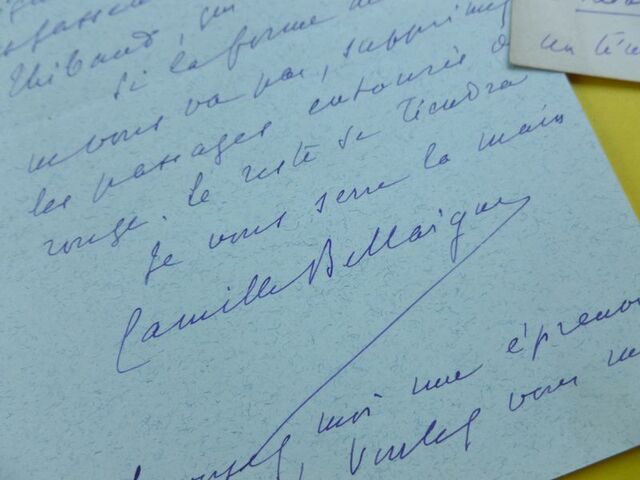 Thibaud, qui
Si la forme
ne vous va pas, supprimez
les passages entourés de
rouge. Le reste se tiendra
Je vous serre la main
Camille Bellaigue
moi une épreuve
, voulez vous
un